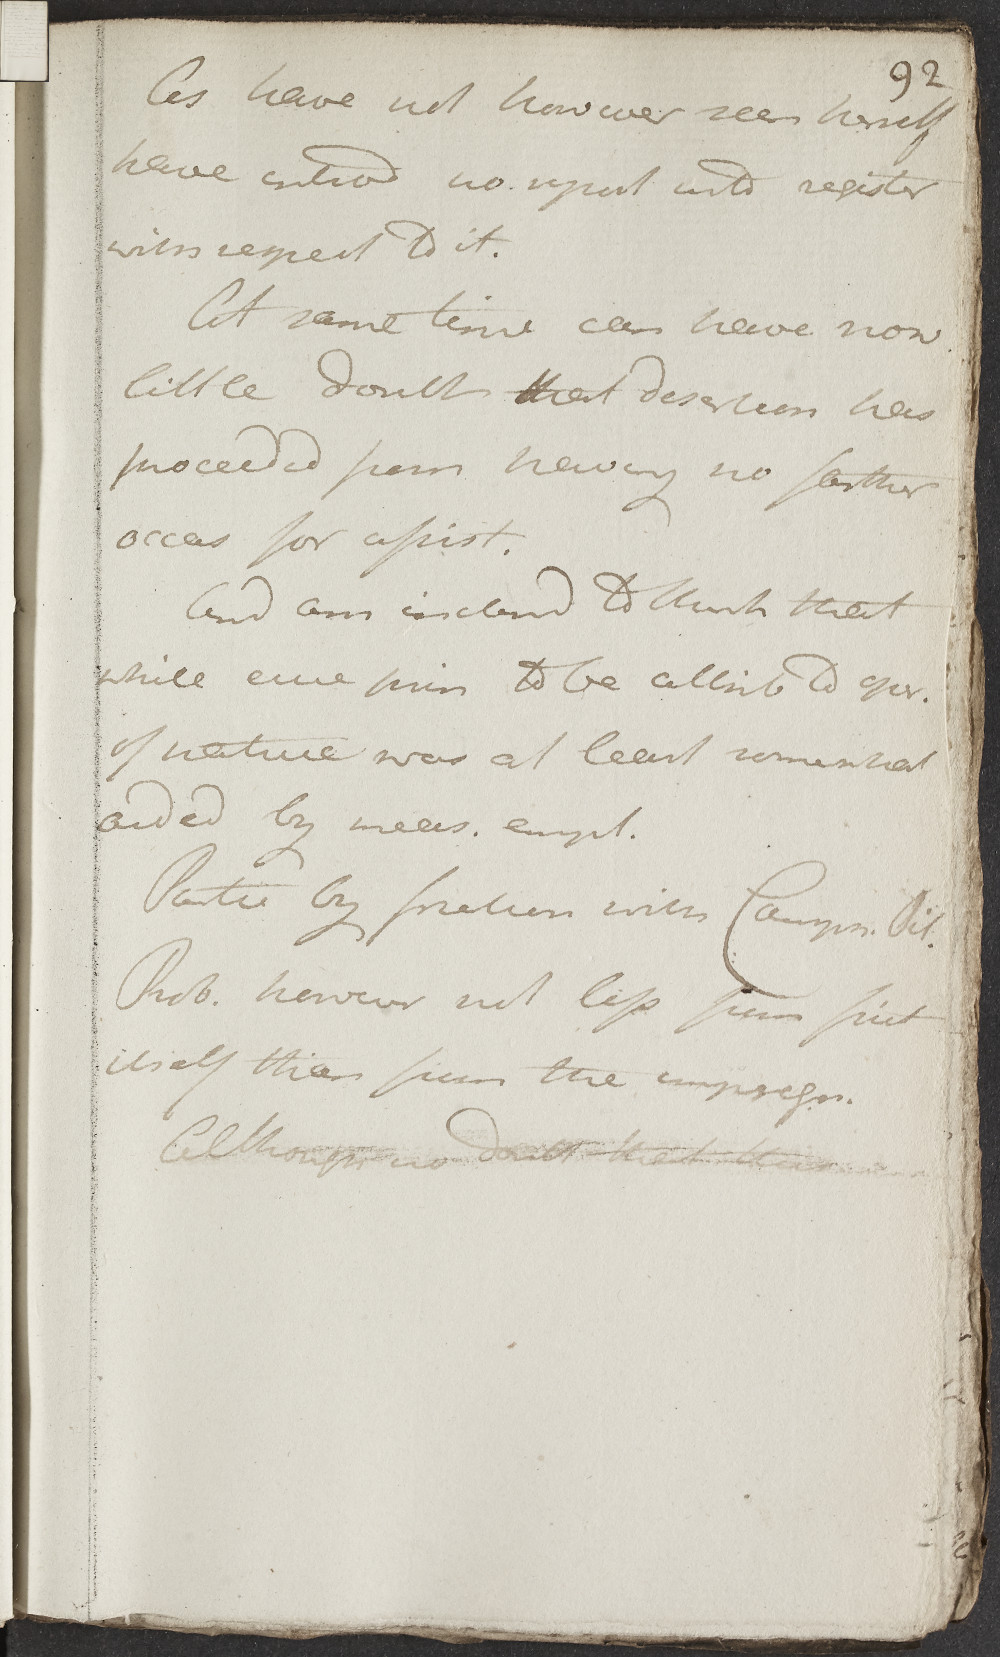 92
As have not however seen herself
have introd no report into register
with respect to it.
At same time can have now
little doubt that desertion has
proceeded from having no farther
occas for assist.
And am inclind to think that
while cure prin to be attrib to oper.
of nature was at least somewhat
aided by meas. empl.
Partic by friction with Camph. Oil.
Prob. however not less from frict
itself than from the impregn.
Although no doubt that this